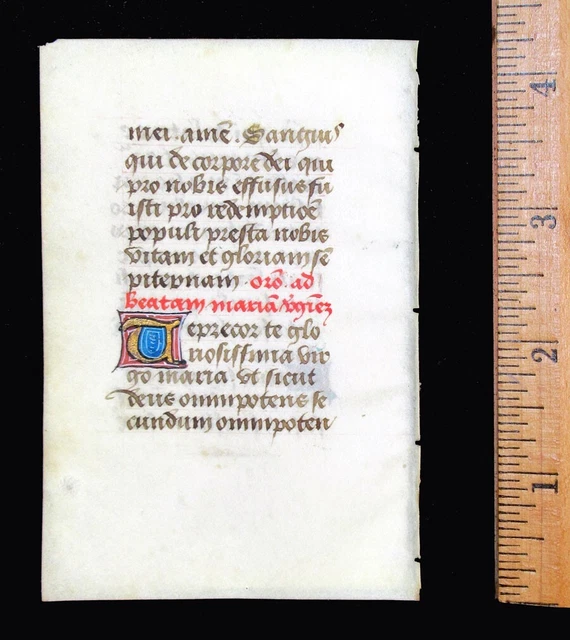 mei. amē. Sanguis
qui de corpore dei qui
pro nobis effusus fu
isti pro redemptiōe
populi presta nobis
vitam et gloriam sē
piternam. orō. ad
beatam mariā v̄ginez
Te eprecor te glo
riosissima vir
go maria vt sicut
deus omnipotens se
cundum omnipoten
4
3
2
1